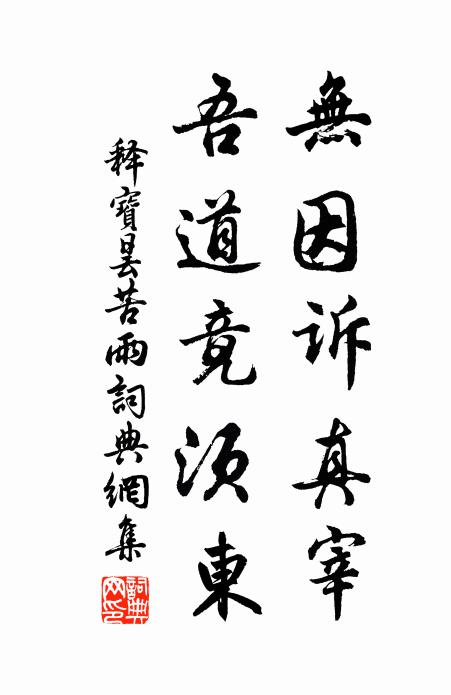 無因訴真宰
吾道竟須東
釋寶曇苦雨詞典網集
詞典網印